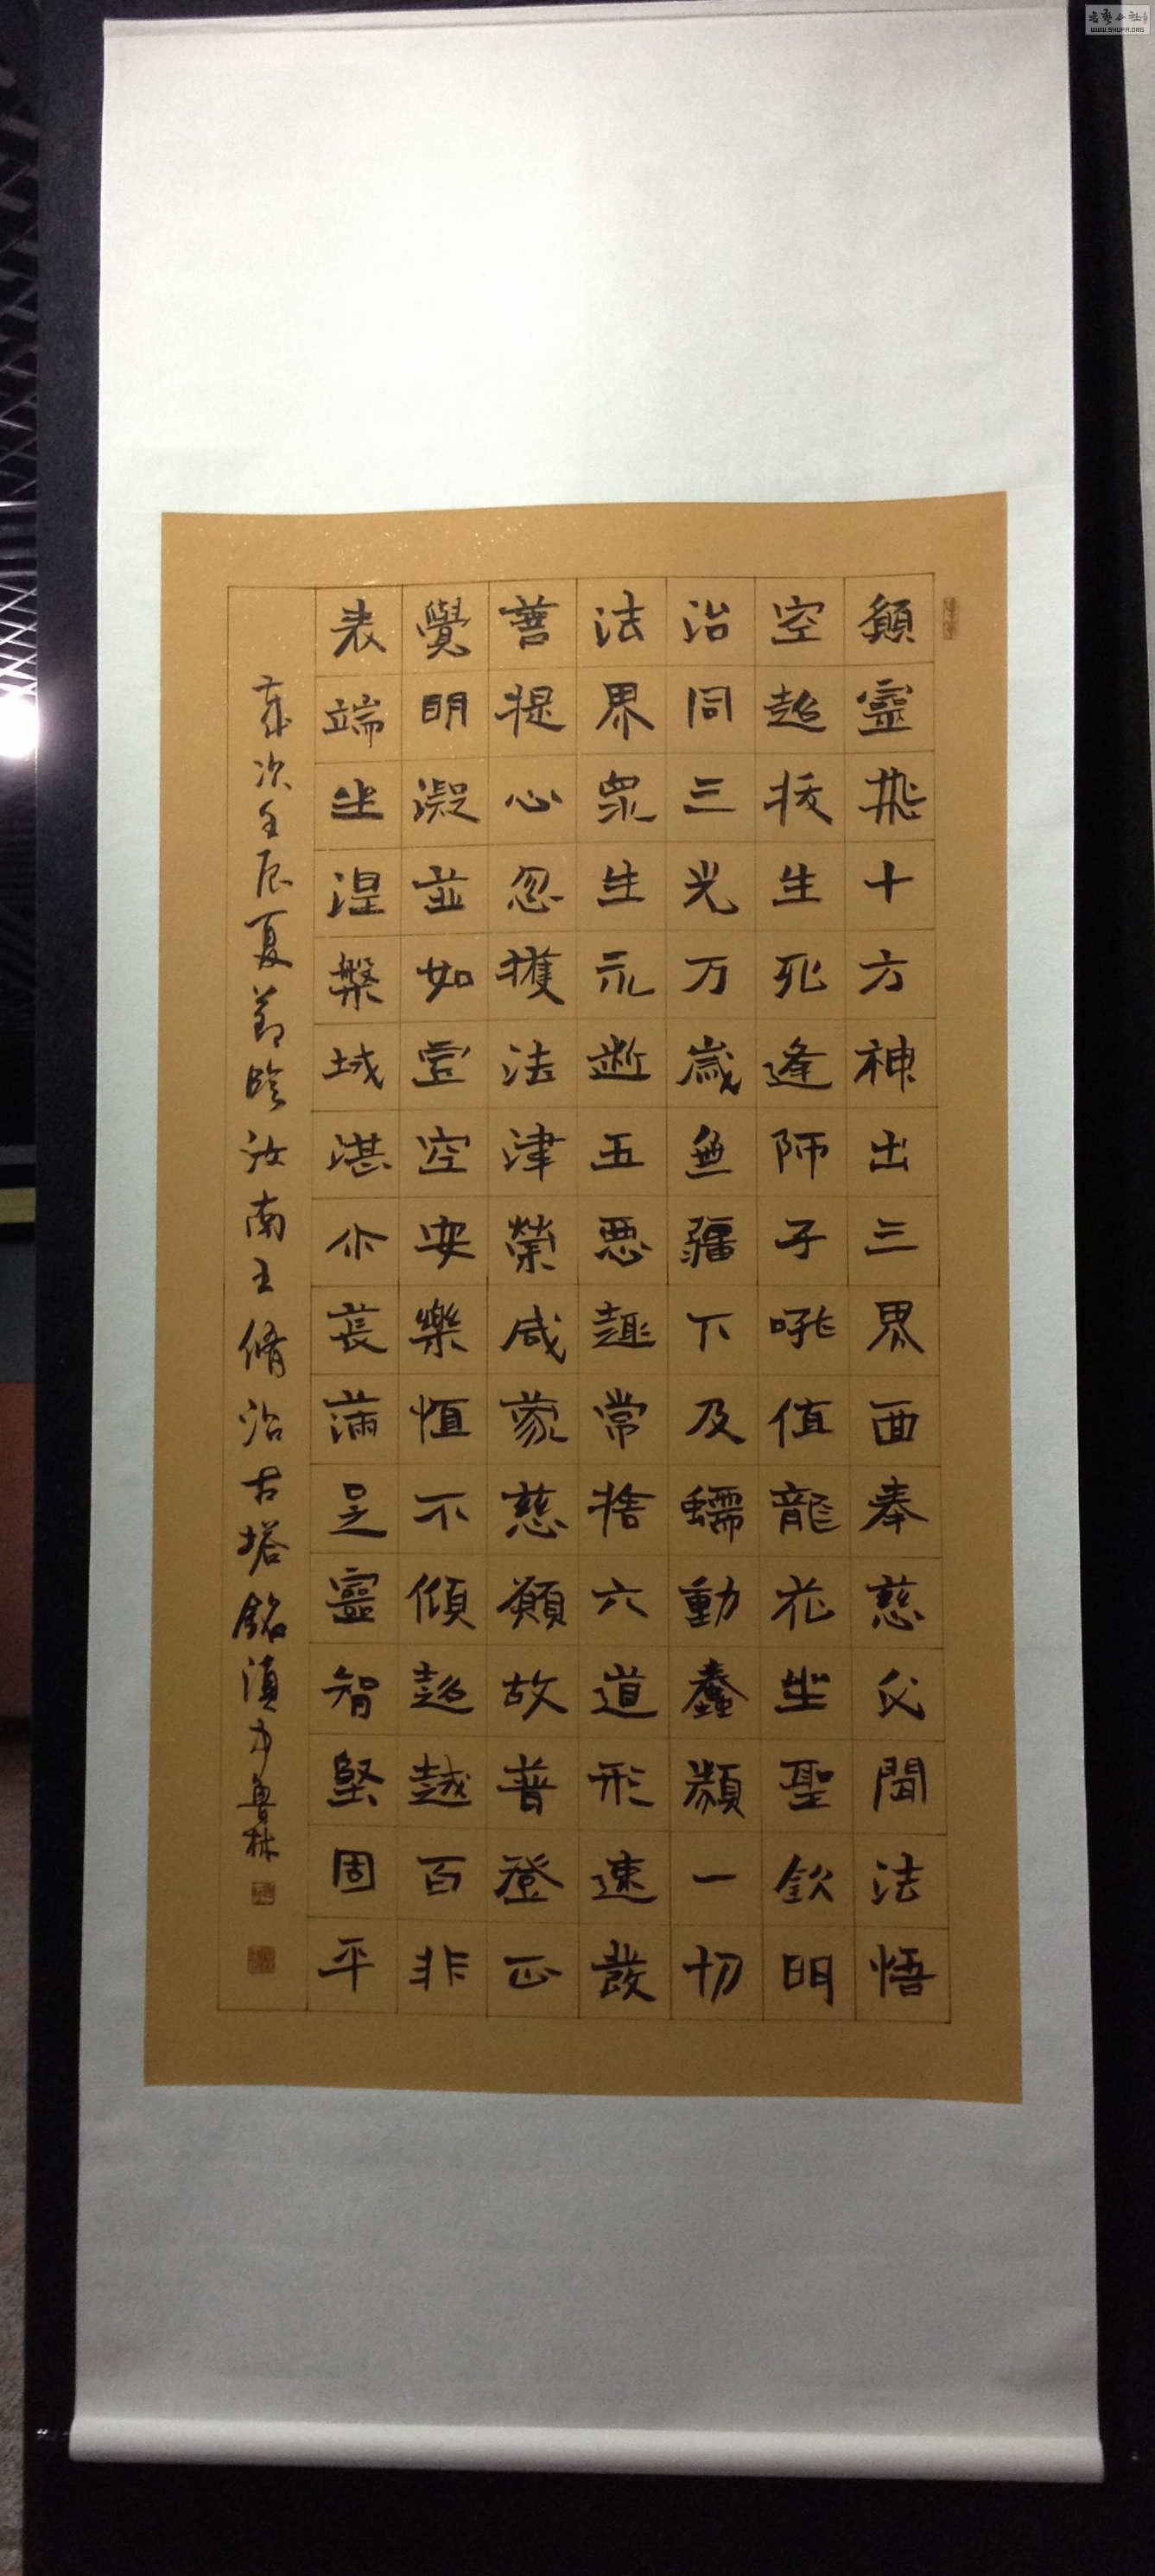 願靈飛十方神出三界面奉慈氏聞法悟
空超拔生死逢師子吼值龍花坐聖欽明
治同三光万歲無疆下及蠕動蠢類一切
法界眾生永断五悪趣常捨六道形速發
菩提心忽獲法津榮咸蒙慈願故普登正
覺明凝並如虛空安樂恒不傾超越百非
表端坐涅槃城湛尒長滿足靈智堅固平
歲次壬辰夏節臨汝南王脩治古塔銘滇中魯林
WWW.SHUFA.ORG